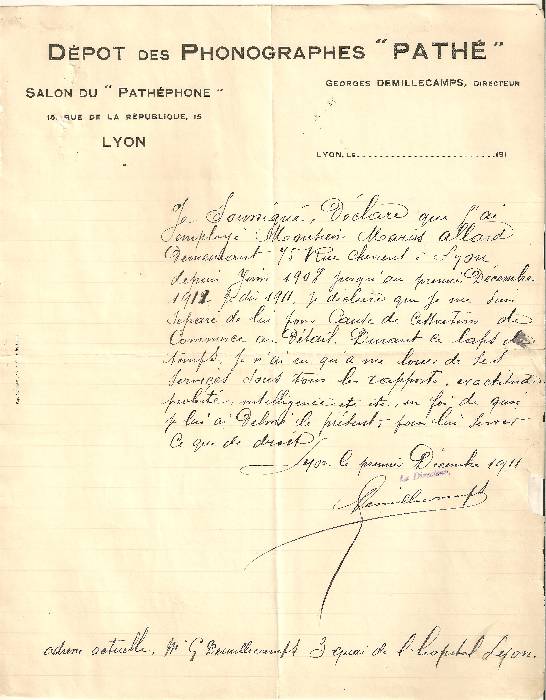 DÉPOT DES PHONOGRAPHES "PATHÉ"
SALON DU "PATHÉPHONE"
GEORGES DEMILLECAMPS, DIRECTEUR
15, RUE DE LA RÉPUBLIQUE, 15
LYON
LYON, LE 191
Je Soussigné, Déclare que j'ai
employé Monsieur Marius Allard
Demeurant 75 Rue à Lyon
depuis Juin 1908 jusqu'au premier Décembre
1911 je dis 1911, je déclare que je me suis
séparé de lui pour Cause de Cessation de
Commerce au Détail. Durant ce laps de
temps, je n'ai eu qu'à me louer de ses
services sous tous les rapports, exactitude
probité, intelligence etc etc, en foi de quoi
je lui ai Délivré le présent, pour lui servir
Ce que de droit
Lyon le premier Décembre 1911
Le Directeur,
Demillecamps
adresse actuelle, Mr G Demillecamps 3 quai de l'hopital Lyon.